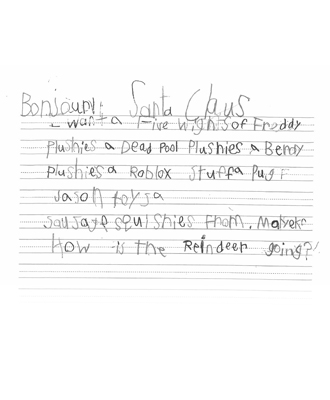 Bonjour! Santa Claus
I want a Five Nights of Freddy
Plushies a Dead Pool Plushies a Bendy
Plushies a Roblox Stuff a Pug F
Jason toys a
Sausage squishies From.
How is the Reindeer going?